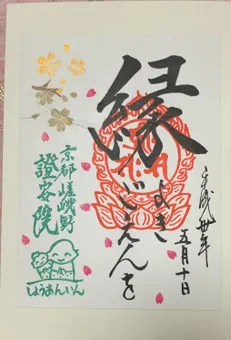 平成卅年
五月十日
縁
よき
ごえんを
京都嵯峨野
證安院
しょうあんいん